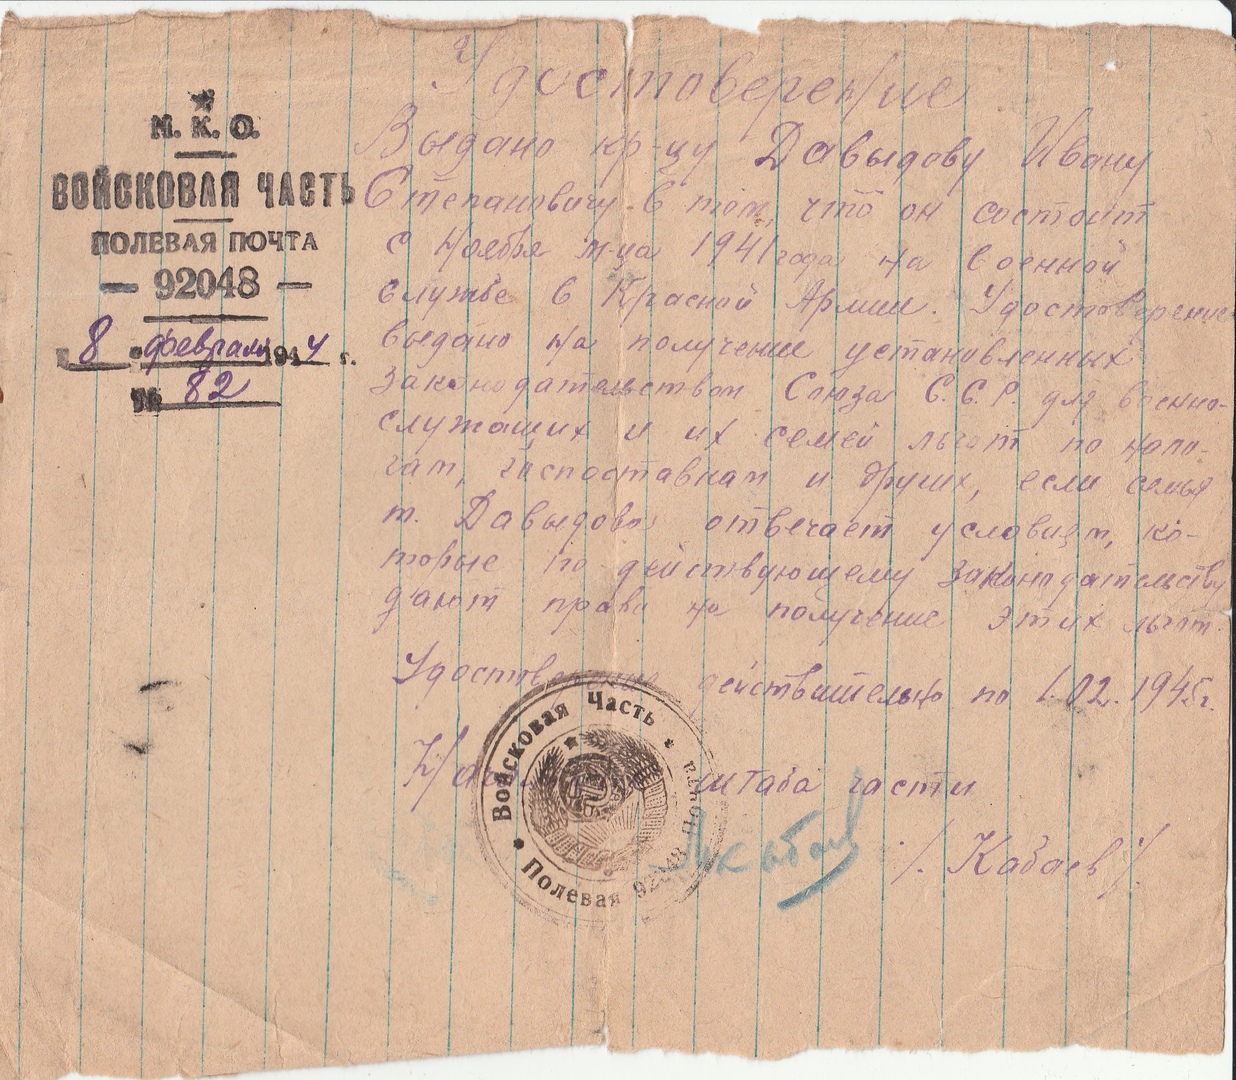 М. К. О.
ВОЙСКОВАЯ ЧАСТЬ
ПОЛЕВАЯ ПОЧТА
— 92048 —
8 февраля 1944 г.
№ 82
Удостоверение
Выдано кр-цу Давыдову Ивану
Степановичу в том, что он состоит
с Ноября м-ца 1941 года на военной
службе в Красной Армии. Удостоверение
выдано на получение установленных
законодательством Союза С.С.Р. для военно-
служащих и их семей льгот по нало-
гам, госпоставкам и других, если семья
т. Давыдова отвечает условиям, ко-
торые по действующему законодательству
дают право на получение этих льгот.
Удостоверение действительно по 1.02.1945г.
штаба части
/. Кабаев /.
Войсковая Часть * Полевая Почта 92048 *